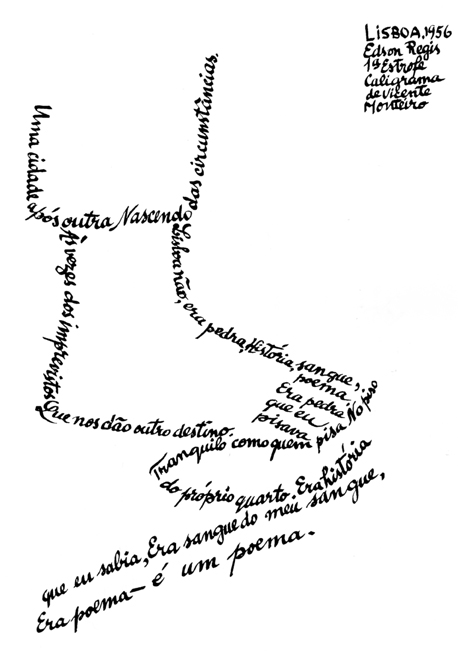 LISBOA, 1956
Edson Regis
1ª Estrofe
Caligrama
de Vicente
Monteiro
Uma cidade após outra Nascendo das circunstâncias.
Às vezes dos imprevistos
Que nos dão outro destino.
Lisboa não, era pedra, História, sangue,
poema.
Era pedra
que eu
pisava
Tranquilo como quem pisa No piso
do próprio quarto. Era história
que eu sabia, Era sangue do meu sangue,
Era poema — é um poema.